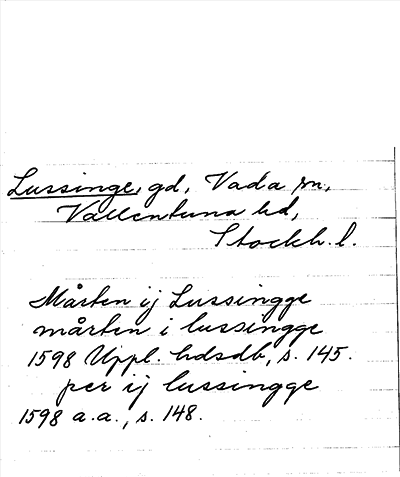 Lussinge, gd, Vada sn,
Vallentuna hd,
Stockh. l.
Mårten ij Lussingge
mårten i lussingge
1598 Uppl. hdsdb, s. 145.
per ij lussingge
1598 a.a., s. 148.